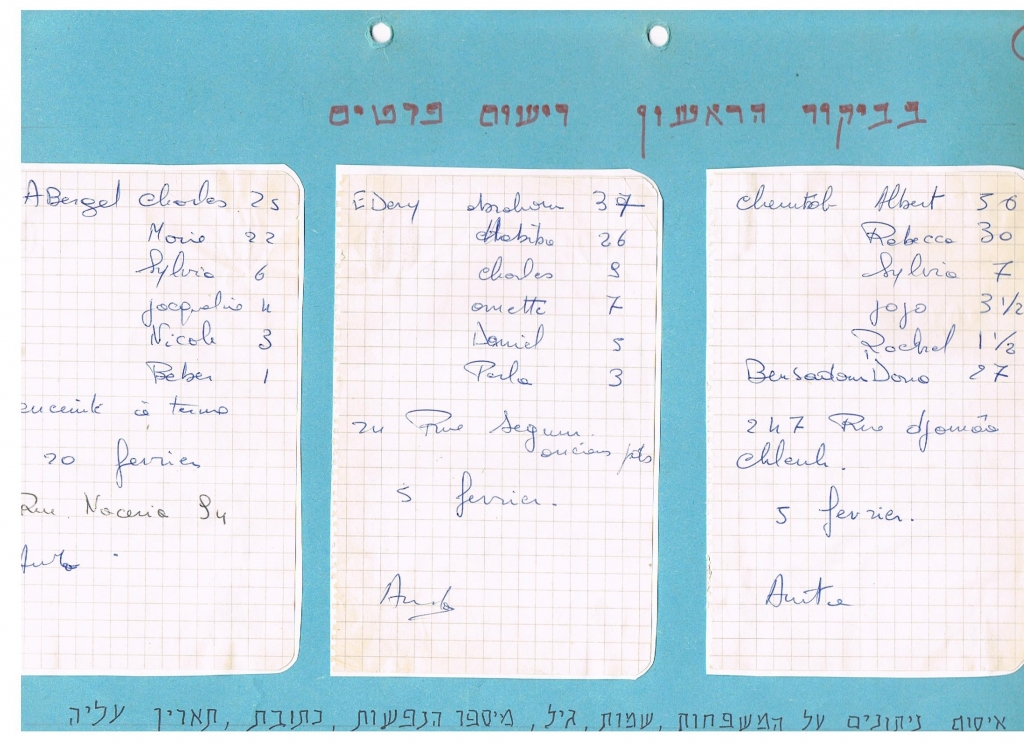 בביקור הראשון רישום פרטים
ABergel Charles 25
Marie 22
Sylvia 6
Jacqueline 4
Nicole 3
Beber 1
enceinte à terme
20 fevrier
Rue Naceria 94
Anita
EDery Abraham 37
Habiba 26
Charles 9
7
Daniel 5
Perla 3
24 Rue Segum
anciens
5 fevrier.
Anita
Chemtob Albert 50
Rebecca 30
Sylvia 7
Jojo 3 1/2
Rachel 1 1/2
Bensadoun Dona 27
247 Rue djemaa
chleuh.
5 fevrier.
Anita
איסוף ניתונים על המשפחות, שמות, גיל, מיספר הנפשות, כתובת, תאריך עליה